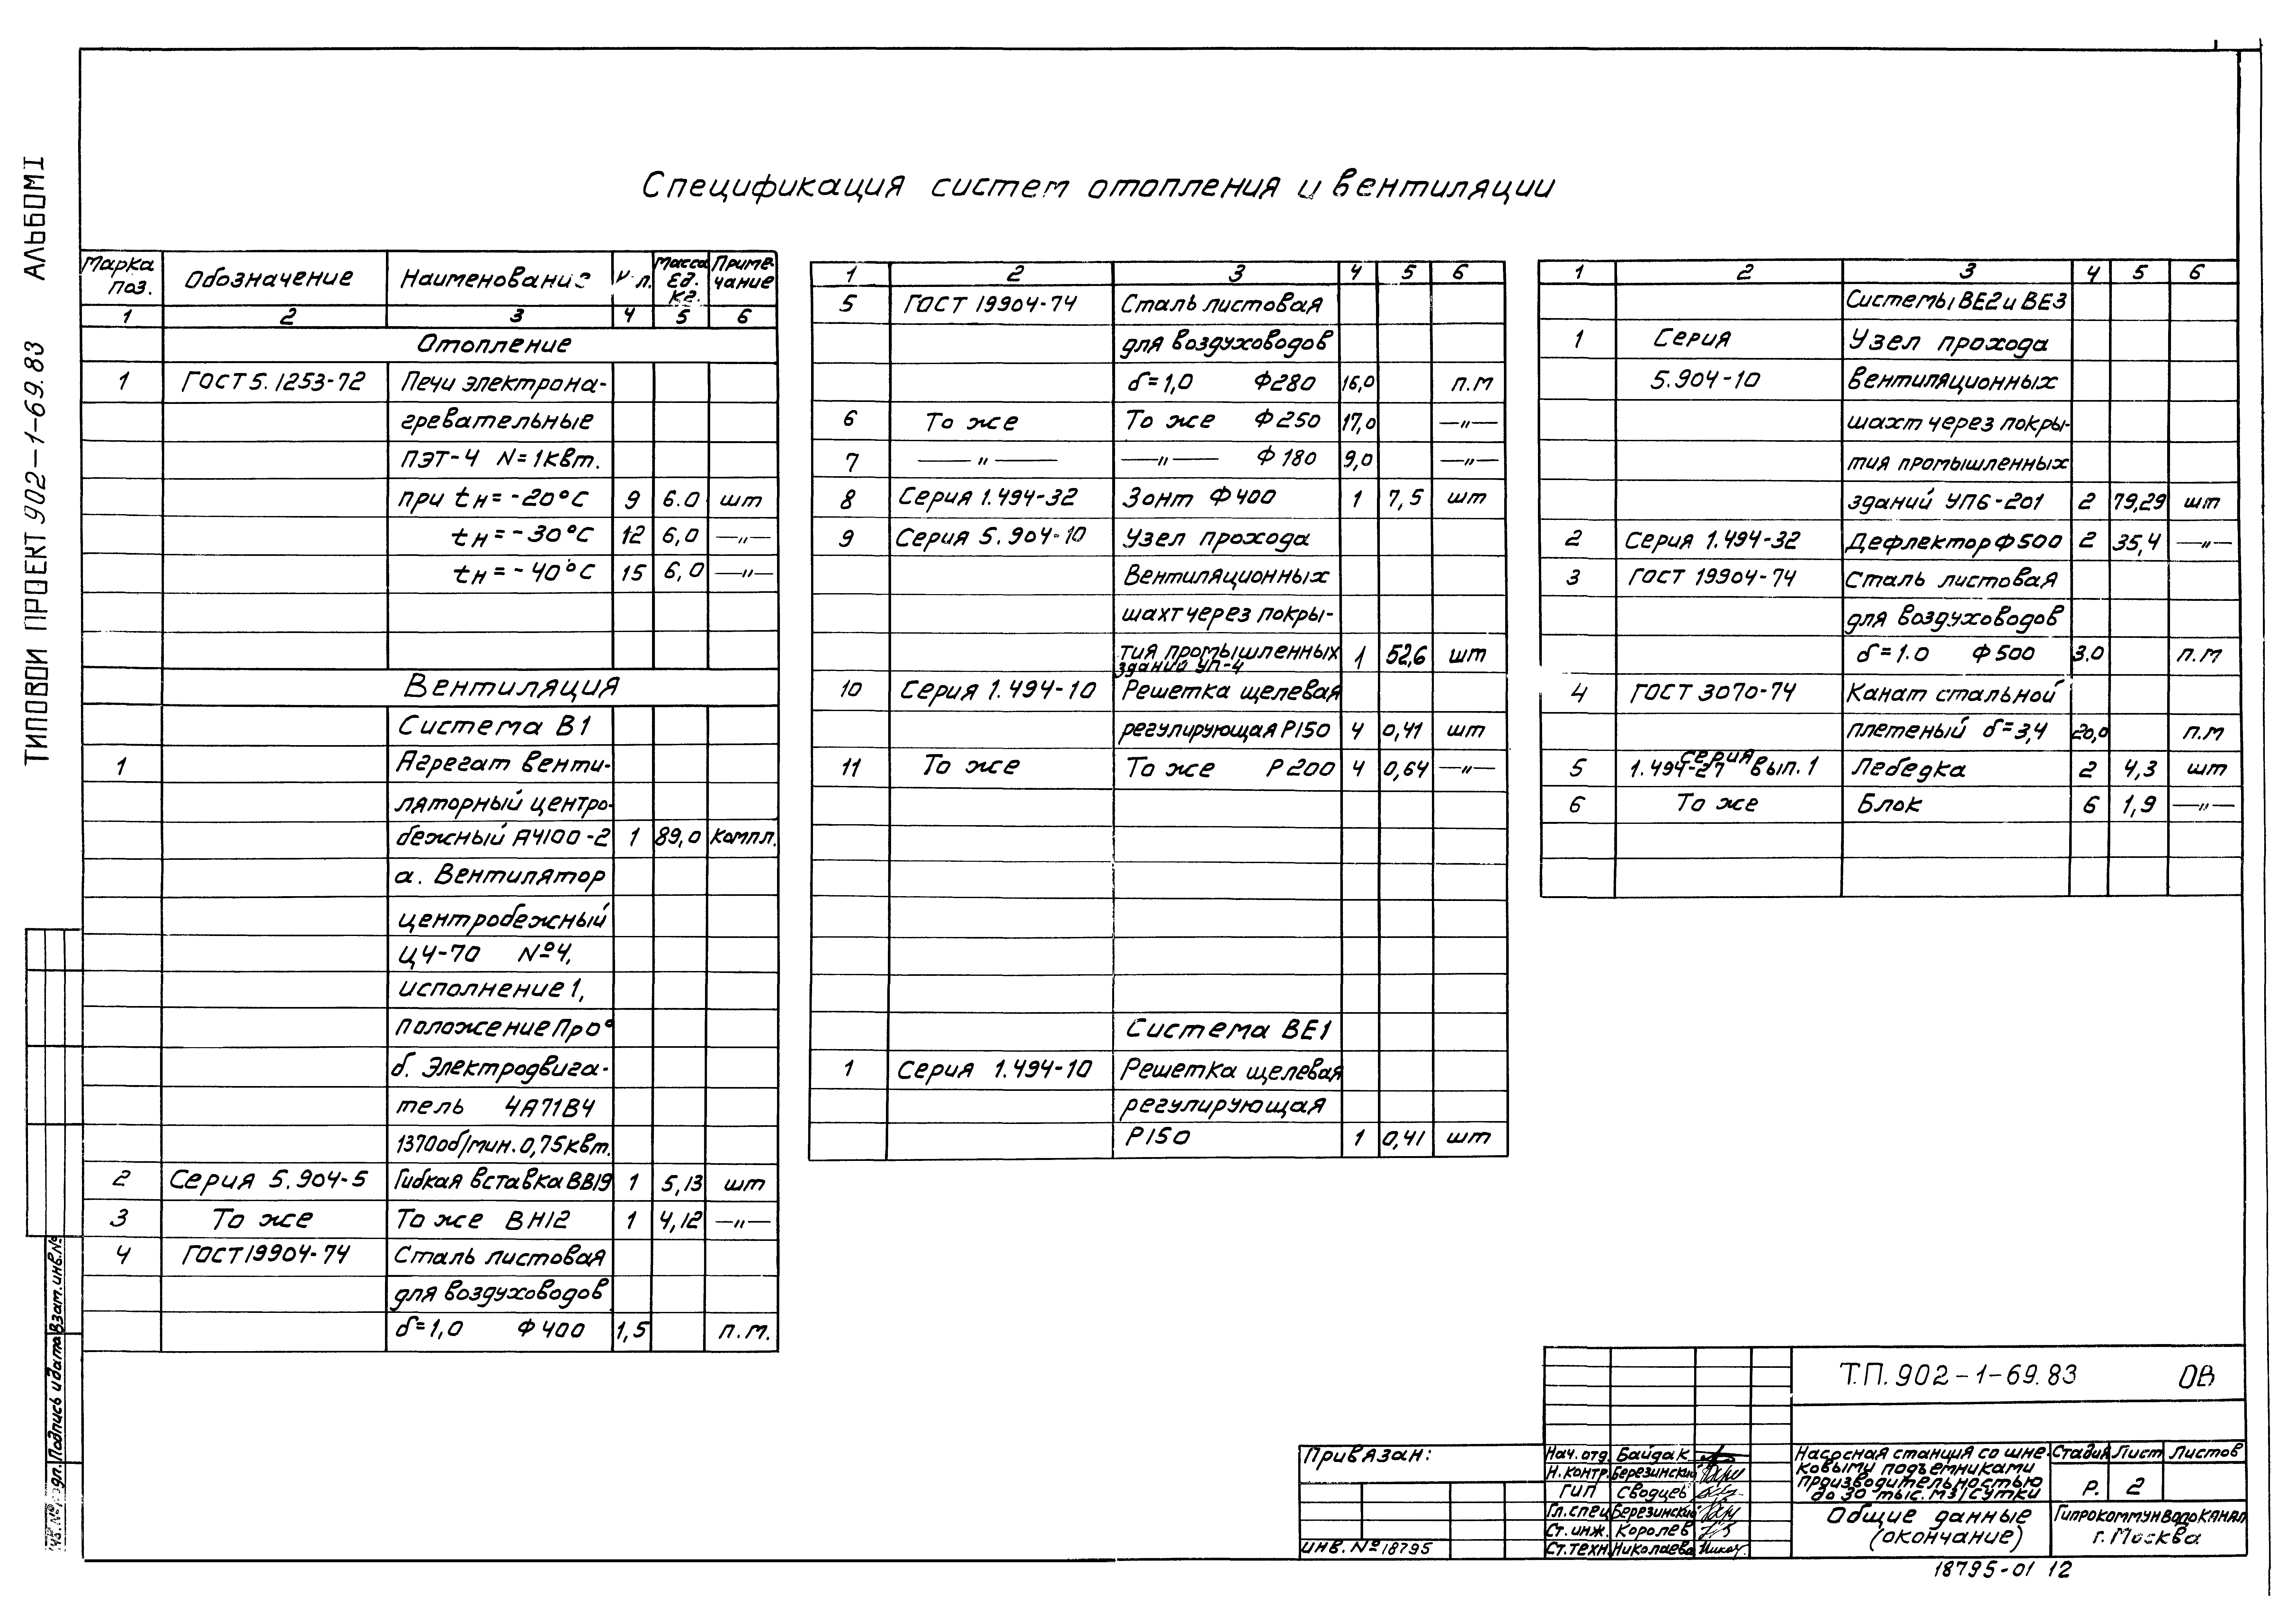 ТИПОВОЙ ПРОЕКТ 902-1-69.83 АЛЬБОМ I
Спецификация систем отопления и вентиляции
Марка поз. Обозначение Наименование л. Масса ед. кг. Примечание
1 2 3 4 5 6
Отопление
1 ГОСТ 5.1253-72 Печи электрона-
гревательные
ПЭТ-4 N=1квт.
при tн=-20°С 9 6.0 шт
tн=-30°С 12 6,0 —"—
tн=-40°С 15 6,0 —"—
Вентиляция
Система В1
1 Агрегат венти-
ляторный центро-
бежный А4100-2 1 89,0 компл.
а. Вентилятор
центробежный
Ц4-70 №4,
исполнение 1,
положение Пр0°
б. Электродвига-
тель 4А71В4
1370об/мин. 0,75квт.
2 Серия 5.904-5 Гибкая вставка ВВ19 1 5,13 шт
3 То же То же ВН12 1 4,12 —"—
4 ГОСТ 19904-74 Сталь листовая
для воздуховодов
δ=1,0 Ф400 1,5 п.м.
1 2 3 4 5 6
5 ГОСТ 19904-74 Сталь листовая
для воздуховодов
δ=1,0 Ф280 16,0 п.м
6 То же То же Ф250 17,0 —"—
7 —"— —"— Ф180 9,0 —"—
8 Серия 1.494-32 Зонт Ф400 1 7,5 шт
9 Серия 5.904-10 Узел прохода
вентиляционных
шахт через покры-
тия промышленных 1 52,6 шт
зданий УП-4
10 Серия 1.494-10 Решетка щелевая
регулирующая Р150 4 0,41 шт
11 То же То же Р200 4 0,64 —"—
Система ВЕ1
1 Серия 1.494-10 Решетка щелевая
регулирующая
Р150 1 0,41 шт
1 2 3 4 5 6
Системы ВЕ2 и ВЕ3
1 Серия Узел прохода
5.904-10 вентиляционных
шахт через покры-
тия промышленных
зданий УП6-201 2 79,29 шт
2 Серия 1.494-32 Дефлектор Ф500 2 35,4 —"—
3 ГОСТ 19904-74 Сталь листовая
для воздуховодов
δ=1.0 Ф500 3,0 п.м
4 ГОСТ 3070-74 Канат стальной
плетеный δ=3,4 20,0 п.м
серия
5 1.494-27 вып.1 Лебедка 2 4,3 шт
6 То же Блок 6 1,9 —"—
Взам. инв.№
Подпись и дата
Т.П. 902-1-69.83 ОВ
Привязан:
инв. № 18795
Нач. отд. Байдак
Н. контр. Березинский
ГИП Сводцев
Гл. спец. Березинский
Ст. инж. Королев
Ст. техн. Николаева
Насосная станция со шне-
ковыми подъемниками
производительностью
до 30 тыс. м3/сутки
Стадия Лист Листов
Р. 2
Общие данные
(окончание)
Гипрокоммунводоканал
г. Москва
18795-01 12